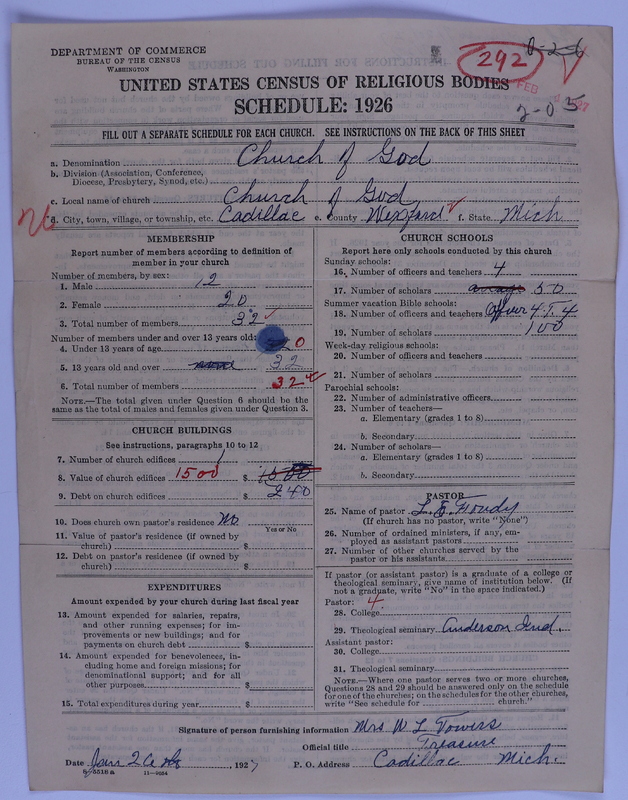 DEPARTMENT OF COMMERCE
BUREAU OF THE CENSUS
WASHINGTON
292
0-2-6
FEB
2-05
UNITED STATES CENSUS OF RELIGIOUS BODIES
SCHEDULE: 1926
FILL OUT A SEPARATE SCHEDULE FOR EACH CHURCH. SEE INSTRUCTIONS ON THE BACK OF THIS SHEET
a. Denomination Church of God
b. Division (Association, Conference, Diocese, Presbytery, Synod, etc.)
c. Local name of church Church of God
d. City, town, village, or township, etc. Cadillac e. County Wexford f. State Mich
MEMBERSHIP
Report number of members according to definition of
member in your church
Number of members, by sex:
1. Male 12
2. Female 20
3. Total number of members 32
Number of members under and over 13 years old:
4. Under 13 years of age 0
5. 13 years old and over 32
6. Total number of members 32
NOTE.—The total given under Question 6 should be
the same as the total of males and females given under Question 3.
CHURCH BUILDINGS
See instructions, paragraphs 10 to 12
7. Number of church edifices 1
8. Value of church edifices 1500 $ 1500
9. Debt on church edifices $ 240
10. Does church own pastor's residence? No
Yes or No
11. Value of pastor's residence (if owned by
church) $
12. Debt on pastor's residence (if owned by
church) $
EXPENDITURES
Amount expended by your church during last fiscal year
13. Amount expended for salaries, repairs,
and other running expenses; for im-
provements or new buildings; and for
payments on church debt $
14. Amount expended for benevolences, in-
cluding home and foreign missions; for
denominational support; and for all
other purposes $
15. Total expenditures during year $
CHURCH SCHOOLS
Report here only schools conducted by this church
Sunday schools:
16. Number of officers and teachers 4
17. Number of scholars average 50
Summer vacation Bible schools:
18. Number of officers and teachers officer 4 T. 4
19. Number of scholars 100
Week-day religious schools:
20. Number of officers and teachers
21. Number of scholars
Parochial schools:
22. Number of administrative officers
23. Number of teachers—
a. Elementary (grades 1 to 8)
b. Secondary
24. Number of scholars—
a. Elementary (grades 1 to 8)
b. Secondary
PASTOR
25. Name of pastor L. E.
(If church has no pastor, write "None")
26. Number of ordained ministers, if any, em-
ployed as assistant pastors
27. Number of other churches served by the
pastor or his assistants
If pastor (or assistant pastor) is a graduate of a college or
theological seminary, give name of institution below. (If
not a graduate, write "No" in the space indicated.)
Pastor: 4
28. College
29. Theological seminary Anderson Ind.
Assistant pastor:
30. College
31. Theological seminary
NOTE.—Where one pastor serves two or more churches,
Questions 28 and 29 should be answered only on the schedule
for one of the churches; on the schedules for the other churches,
write "See schedule for church."
Signature of person furnishing information Mrs W L Towers
Official title Treasure
Date Jan 26 1927 P. O. Address Cadillac Mich.
8-5518a 11-9034